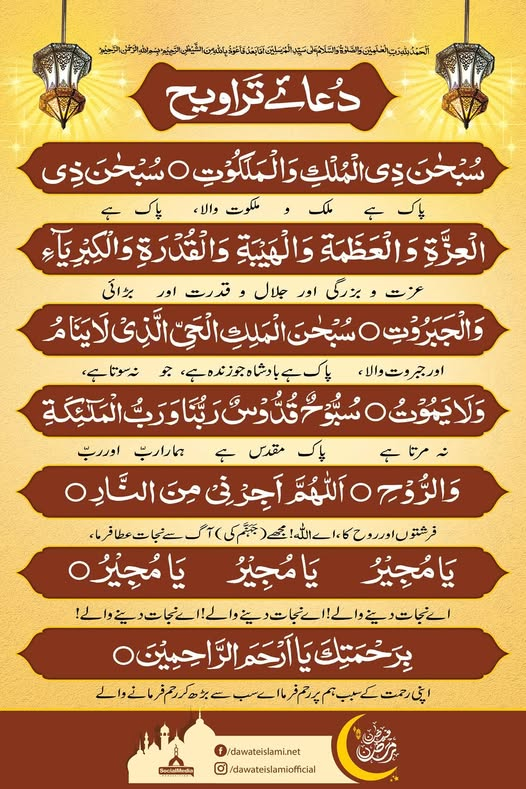 اَلْحَمْدُ لِلّٰہِ رَبِّ الْعٰلَمِیْنَ وَالصَّلٰوۃُ وَالسَّلَامُ عَلٰی سَیِّدِ الْمُرْسَلِیْنَ اَمَّا بَعْدُ فَاَعُوْذُ بِاللّٰہِ مِنَ الشَّیْطٰنِ الرَّجِیْمِ بِسْمِ اللّٰہِ الرَّحْمٰنِ الرَّحِیْمِ
دُعائے تَراویح
سُبْحٰنَ ذِی الْمُلْكِ وَالْمَلَكُوْتِ ○ سُبْحٰنَ ذِی
پاک ہے ملک و ملکوت والا، پاک ہے
الْعِزَّةِ وَالْعَظَمَةِ وَالْهَيْبَةِ وَالْقُدْرَةِ وَالْكِبْرِيَآءِ
عزت و بزرگی اور جلال و قدرت اور بڑائی
وَالْجَبَرُوْتِ ○ سُبْحٰنَ الْمَلِكِ الْحَیِّ الَّذِیْ لَا یَنَامُ
اور جبروت والا، پاک ہے بادشاہ جو زندہ ہے، جو نہ سوتا ہے،
وَلَا یَمُوْتُ ○ سُبُّوْحٌ قُدُّوْسٌ رَبُّنَا وَرَبُّ الْمَلٰٓئِكَةِ
نہ مرتا ہے پاک مقدس ہے ہمارا ربّ اور ربّ
وَالرُّوْحِ ○ اَللّٰهُمَّ اَجِرْنِیْ مِنَ النَّارِ ○
فرشتوں اور روح کا، اے اللہ! مجھے (جہنَّم کی) آگ سے نجات عطا فرما،
یَا مُجِیْرُ یَا مُجِیْرُ یَا مُجِیْرُ ○
اے نجات دینے والے! اے نجات دینے والے! اے نجات دینے والے!
بِرَحْمَتِكَ یَا اَرْحَمَ الرَّاحِمِیْنَ ○
اپنی رحمت کے سبب ہم پر رحم فرما اے سب سے بڑھ کر رحم فرمانے والے
SocialMedia
/dawateislami.net
/dawateislamiofficial